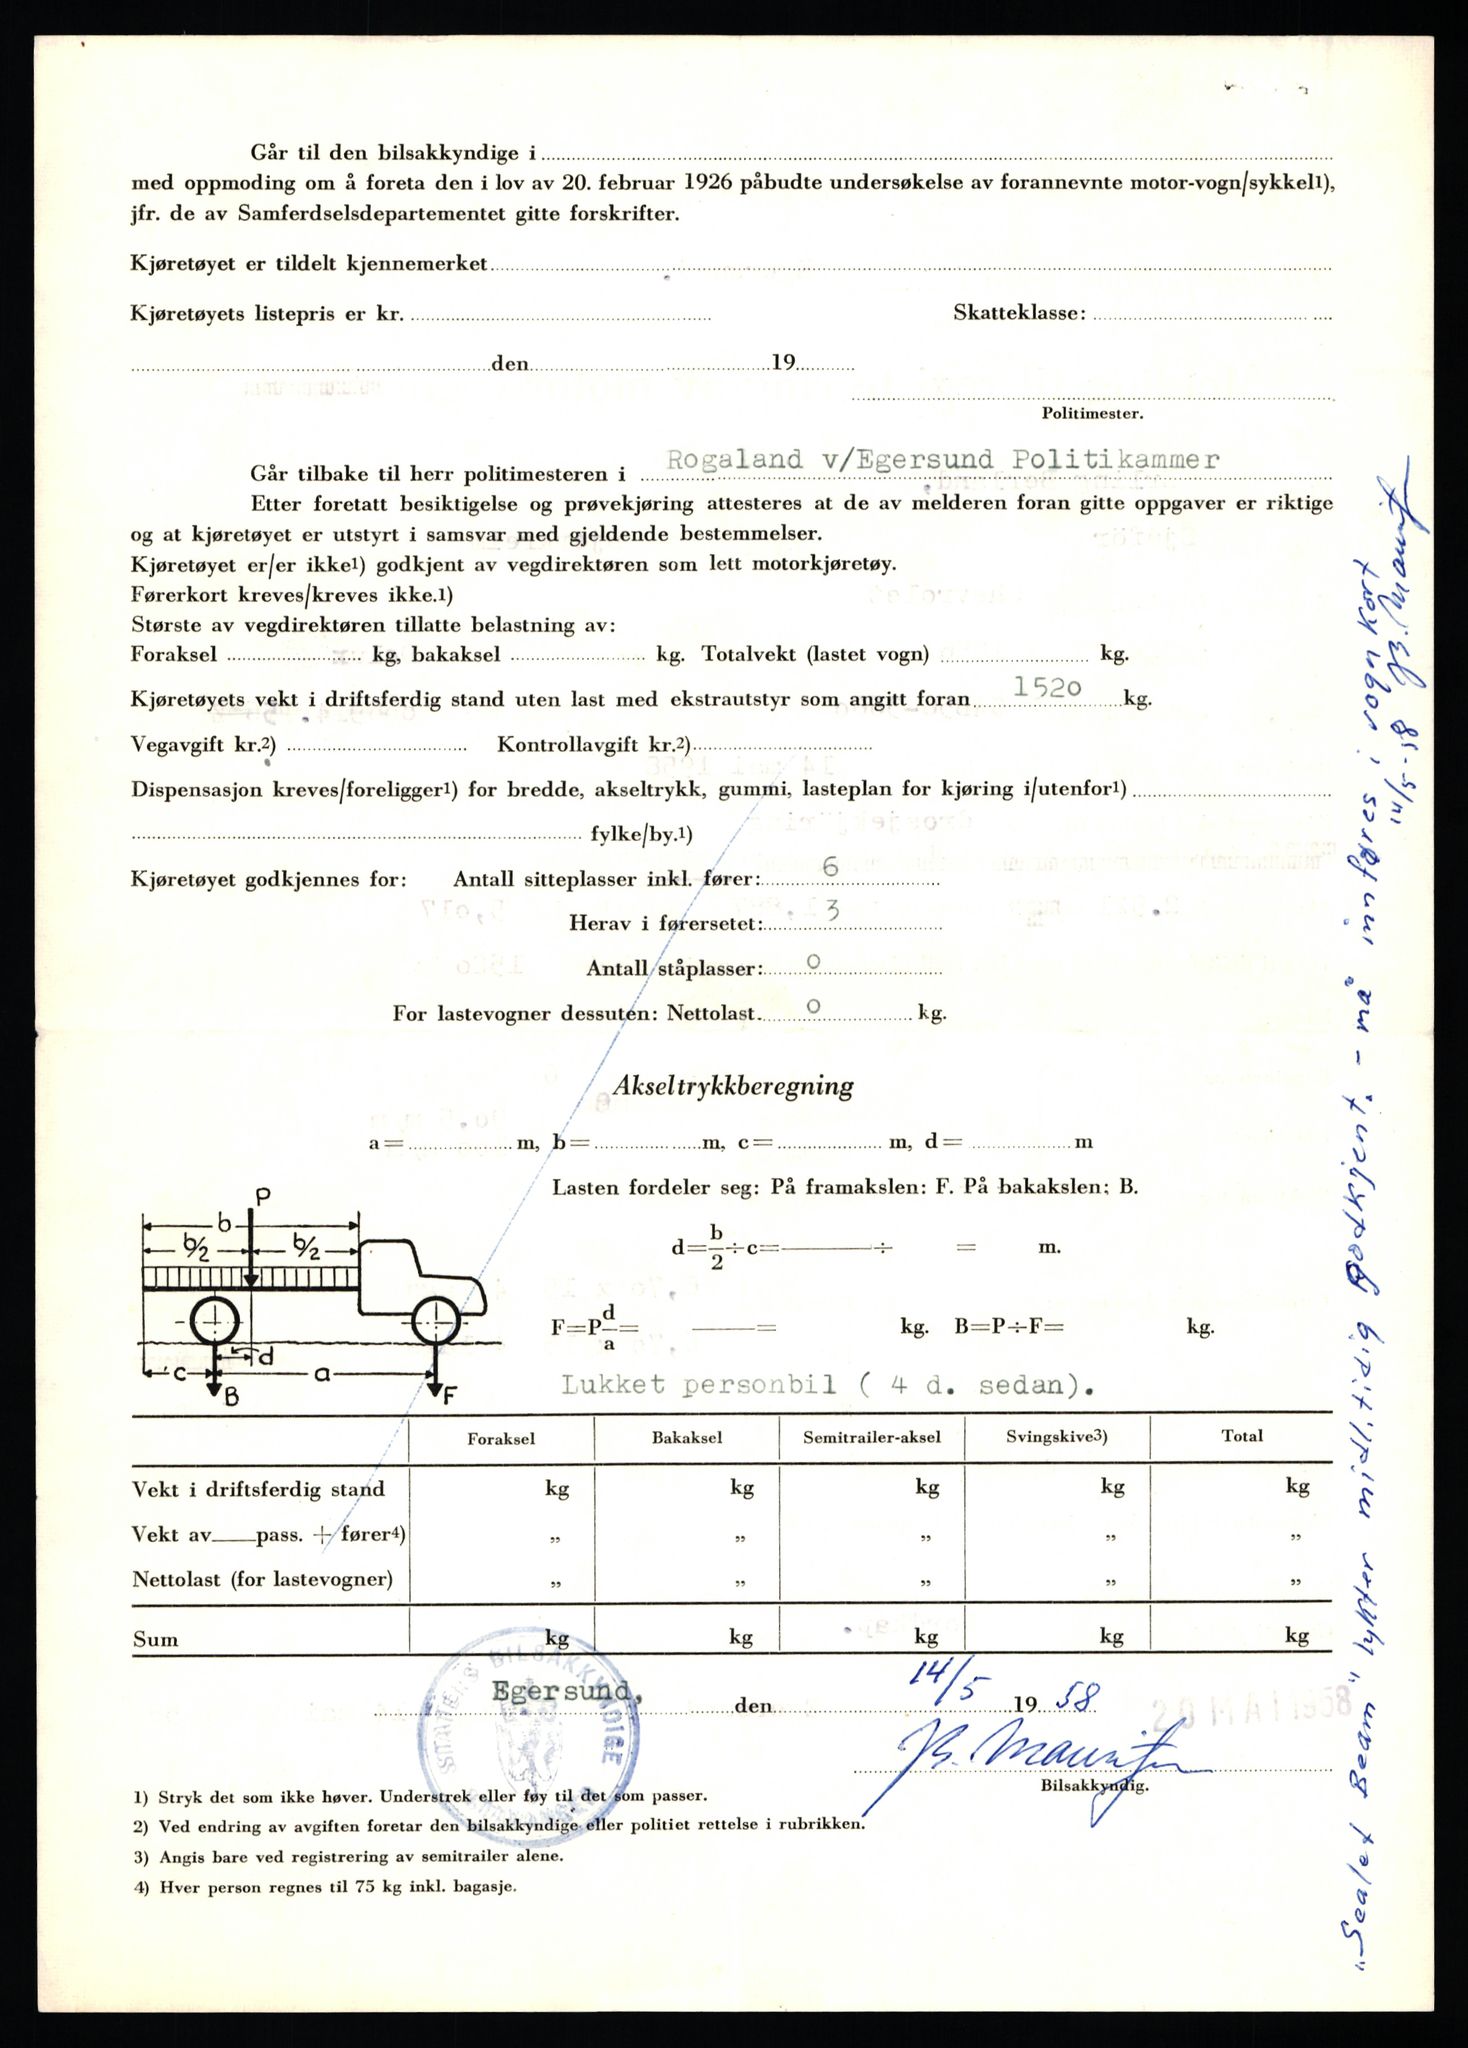 Går til den bilsakkyndige i
med oppmoding om å foreta den i lov av 20. februar 1926 påbudte undersøkelse av forannevnte motor-vogn/sykkel1),
jfr. de av Samferdselsdepartementet gitte forskrifter.
Kjøretøyet er tildelt kjennemerket
Kjøretøyets listepris er kr. Skatteklasse:
den 19
Politimester.
Går tilbake til herr politimesteren i Rogaland v/Egersund Politikammer
Etter foretatt besiktigelse og prøvekjøring attesteres at de av melderen foran gitte oppgaver er riktige
og at kjøretøyet er utstyrt i samsvar med gjeldende bestemmelser.
Kjøretøyet er/er ikke1) godkjent av vegdirektøren som lett motorkjøretøy.
Førerkort kreves/kreves ikke.1)
Største av vegdirektøren tillatte belastning av:
Foraksel kg, bakaksel kg. Totalvekt (lastet vogn) kg.
Kjøretøyets vekt i driftsferdig stand uten last med ekstrautstyr som angitt foran 1520 kg.
Vegavgift kr.2) Kontrollavgift kr.2)
Dispensasjon kreves/foreligger1) for bredde, akseltrykk, gummi, lasteplan for kjøring i/utenfor1)
fylke/by.1)
Kjøretøyet godkjennes for: Antall sitteplasser inkl. fører: 6
Herav i førersetet: 3
Antall ståplasser: 0
For lastevogner dessuten: Nettolast. 0 kg.
Akseltrykkberegning
a= m, b= m, c= m, d= m
Lasten fordeler seg: På framakslen: F. På bakakslen: B.
d=b/2÷c= ÷ = m.
F=P d/a= = kg. B=P÷F= kg.
P
b
b/2 b/2
d
c a
B F
Lukket personbil ( 4 d. sedan).
Foraksel Bakaksel Semitrailer-aksel Svingskive3) Total
Vekt i driftsferdig stand kg kg kg kg kg
Vekt av pass. + fører4) „ „ „ „ „
Nettolast (for lastevogner) „ „ „ „ „
Sum kg kg kg kg kg
STATENS BILSAKKYNDIGE
Egersund, den 14/5 19 58
20 MAI 1958
Bilsakkyndig.
1) Stryk det som ikke høver. Understrek eller føy til det som passer.
2) Ved endring av avgiften foretar den bilsakkyndige eller politiet rettelse i rubrikken.
3) Angis bare ved registrering av semitrailer alene.
4) Hver person regnes til 75 kg inkl. bagasje.
"Sealet Beam" lykter midlitidig godkjent. - må innføres i vognkort
14/5-58